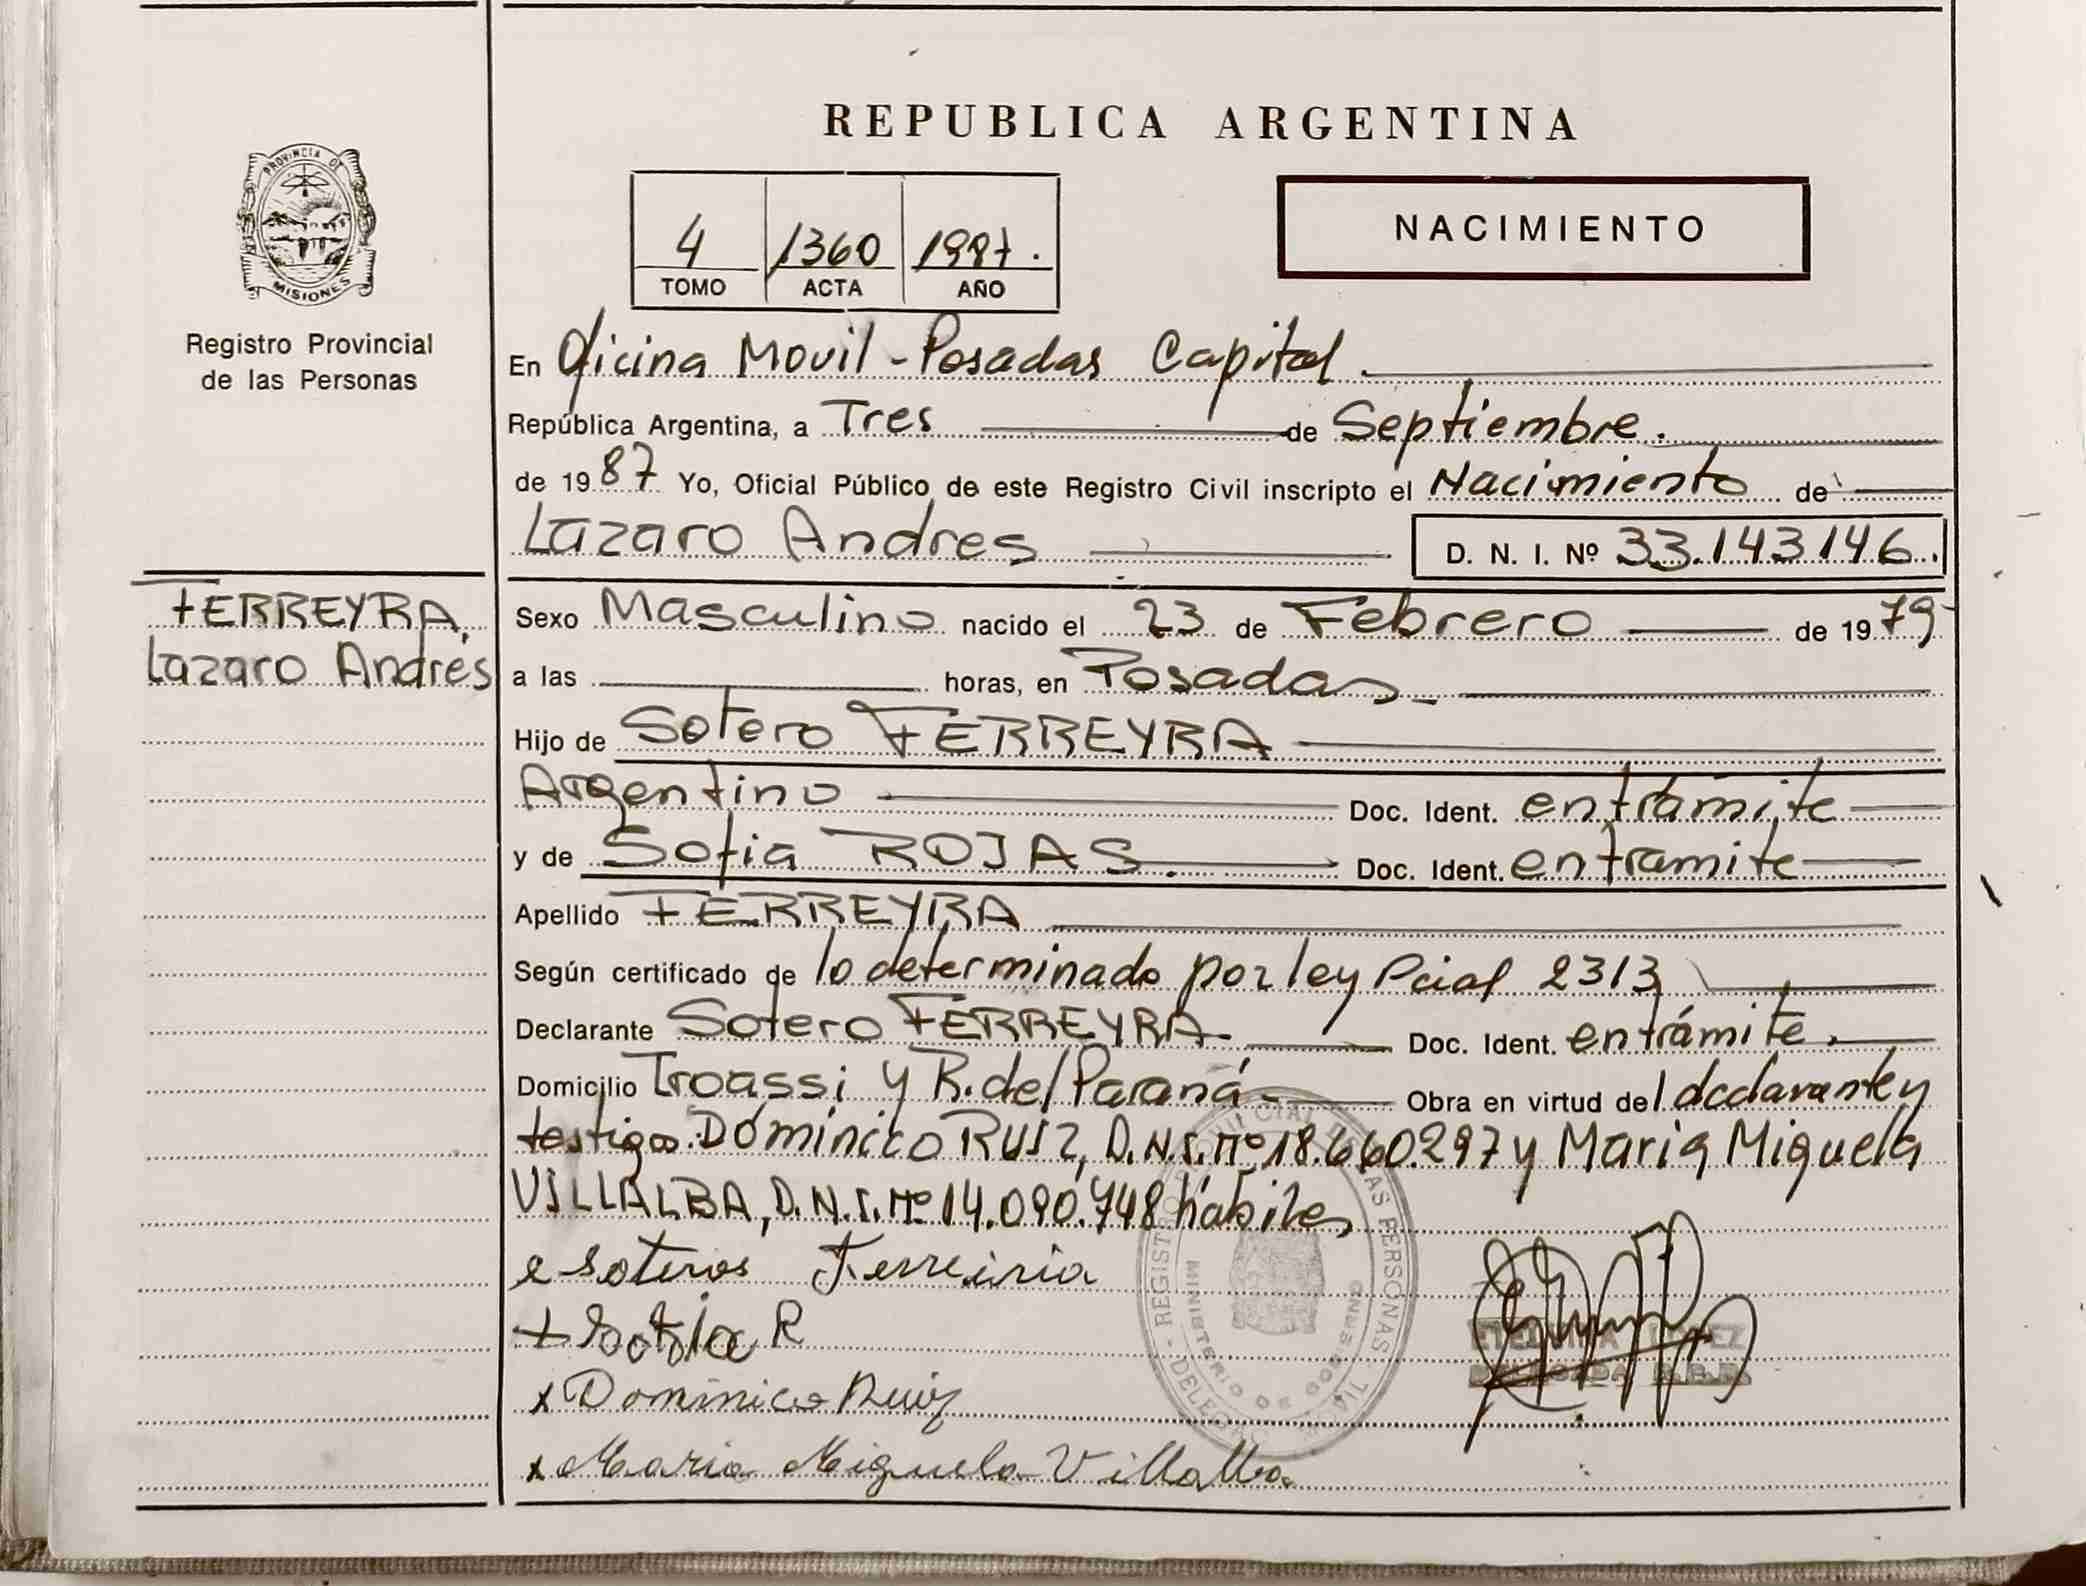 REPUBLICA ARGENTINA
PROVINCIA DE
MISIONES
Registro Provincial
de las Personas
4 1360 1987.
TOMO ACTA AÑO
NACIMIENTO
En Oficina Movil - Posadas Capital.
República Argentina, a Tres de Septiembre.
de 1987 Yo, Oficial Público de este Registro Civil inscripto el Nacimiento de
Lazaro Andres D. N. I. Nº 33.143.146.
FERREYRA,
Lazaro Andrés
Sexo Masculino nacido el 23 de Febrero de 1979
a las horas, en Posadas
Hijo de Sotero FERREYRA
Argentino Doc. Ident. en trámite
y de Sofia ROJAS. Doc. Ident. en tramite
Apellido FERREYRA
Según certificado de lo determinado por ley Pcial 2313
Declarante Sotero FERREYRA Doc. Ident. en trámite.
Domicilio Troassi y R. del Paraná - Obra en virtud del declarante y
testigos Dominico RUIZ, D.N.I. Nº 18.660.297 y Maria Miguela
VILLALBA, D.N.I. Nº 14.090.748 hábiles
Soteros Ferreiria
R
x Dominico Ruiz
x Maria Miguela Villalba
REGISTRO PROVINCIAL DE LAS PERSONAS
MINISTERIO DE GOBIERNO